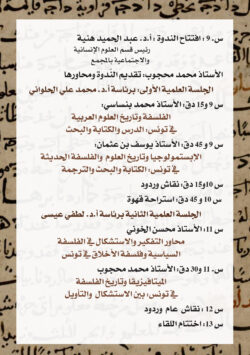 س. 9 : افتتاح الندوة : أ.د. عبد الحميد هنية
رئيس قسم العلوم الإنسانية
والاجتماعية بالمجمع
الأستاذ محمد محجوب: تقديم الندوة ومحاورها
الجلسة العلمية الأولى: برئاسة أ.د. محمد علي الحلواني
س 9 و15 دق: الأستاذ محمد بنساسي:
الفلسفة وتاريخ العلوم العربية
في تونس: الدرس والكتابة والبحث
س 9 و 45 دق: الأستاذ يوسف بن عثمان:
الابستمولوجيا وتاريخ العلوم والفلسفة الحديثة
في تونس: الكتابة والبحث والترجمة
س 10و15 دق: نقاش وردود
س 10 و 45 دق: استراحة قهوة
الجلسة العلمية الثانية برئاسة أ.د. لطفي عيسى
س 11: الأستاذ محسن الخوني
محاور التفكير والاستشكال في الفلسفة
السياسية وفلسفة الأخلاق في تونس
س. 11 و30 دق: الأستاذ محمد محجوب
الميتافيزيقا وتاريخ الفلسفة
في تونس: بين الاستشكال والتأويل
س 12 : نقاش عام وردود
س 13: اختتام اللقاء